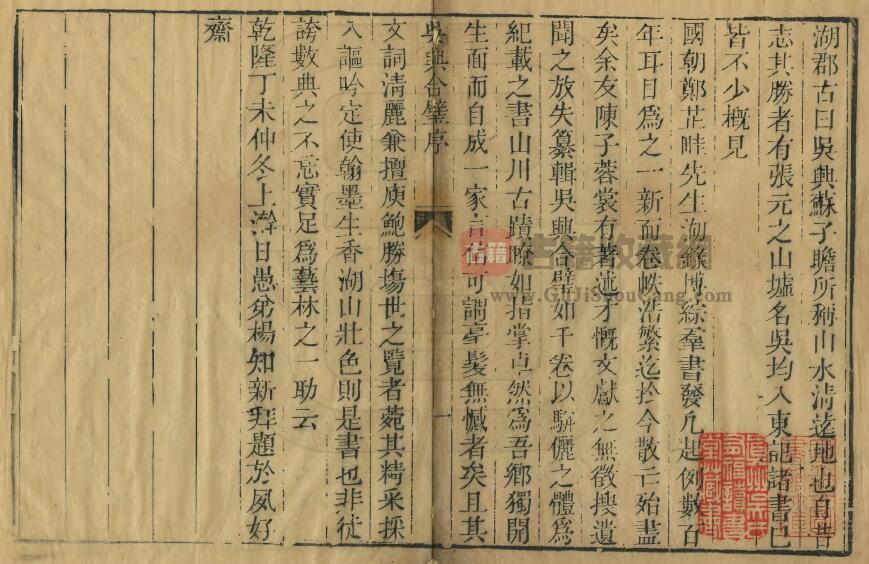 湖郡古曰吳興蘇子瞻所稱山水清遠地也自昔
志其勝者有張元之山墟名吳均入東記諸書巳
皆不少概見
國朝鄭芷畦先生湖錄博綜羣書發凡起例數百
年耳目爲之一新而卷帙浩繁迄於今散亡殆盡
矣余友陳子蓉裳有著述才慨文獻之無徵搜遺
聞之放失纂輯吳興合璧如千卷以駢儷之體爲
紀載之書山川古蹟瞭如指掌卓然爲吾鄉獨開
生面而自成一家言可謂毫髮無憾者矣且其
吳興合璧序
一
文詞清麗兼擅庾鮑勝塲世之覽者菀其精采採
入謳吟定使翰墨生香湖山壯色則是書也非徒
誇數典之不忘實足爲藝林之一助云
乾隆丁未仲冬上澣日愚弟楊知新拜題於夙好
齋
古籍
古籍收藏網
www.GuJiShouCang.com